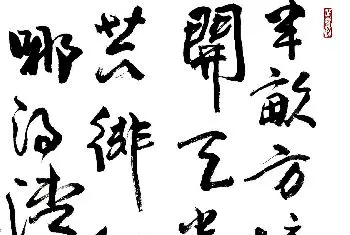 半畝方
開天
共徘
那得清